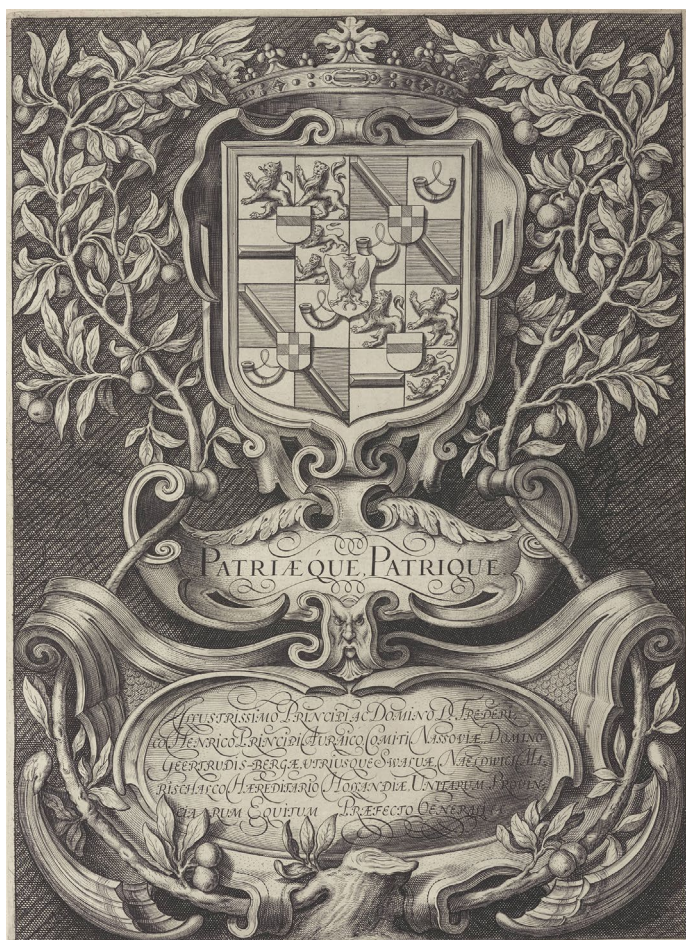 PATRIÆ´QUE, PATRIQUE.
ILLUSTRISSIMO PRINCIPI AC DOMINO D. FREDERI,
CO HENRICO PRINCIPI AURAICO COMITI NASSOVIÆ DOMINO
GEERTRUDIS-BERGÆ, UTRIUSQUE SWALUÆ, NAELDWICI, MA,
RISCHALCO HÆREDITARIO HOLLANDIÆ, UNITARUM PROVIN,
CIARUM EQUITUM PRÆFECTO GENERALI